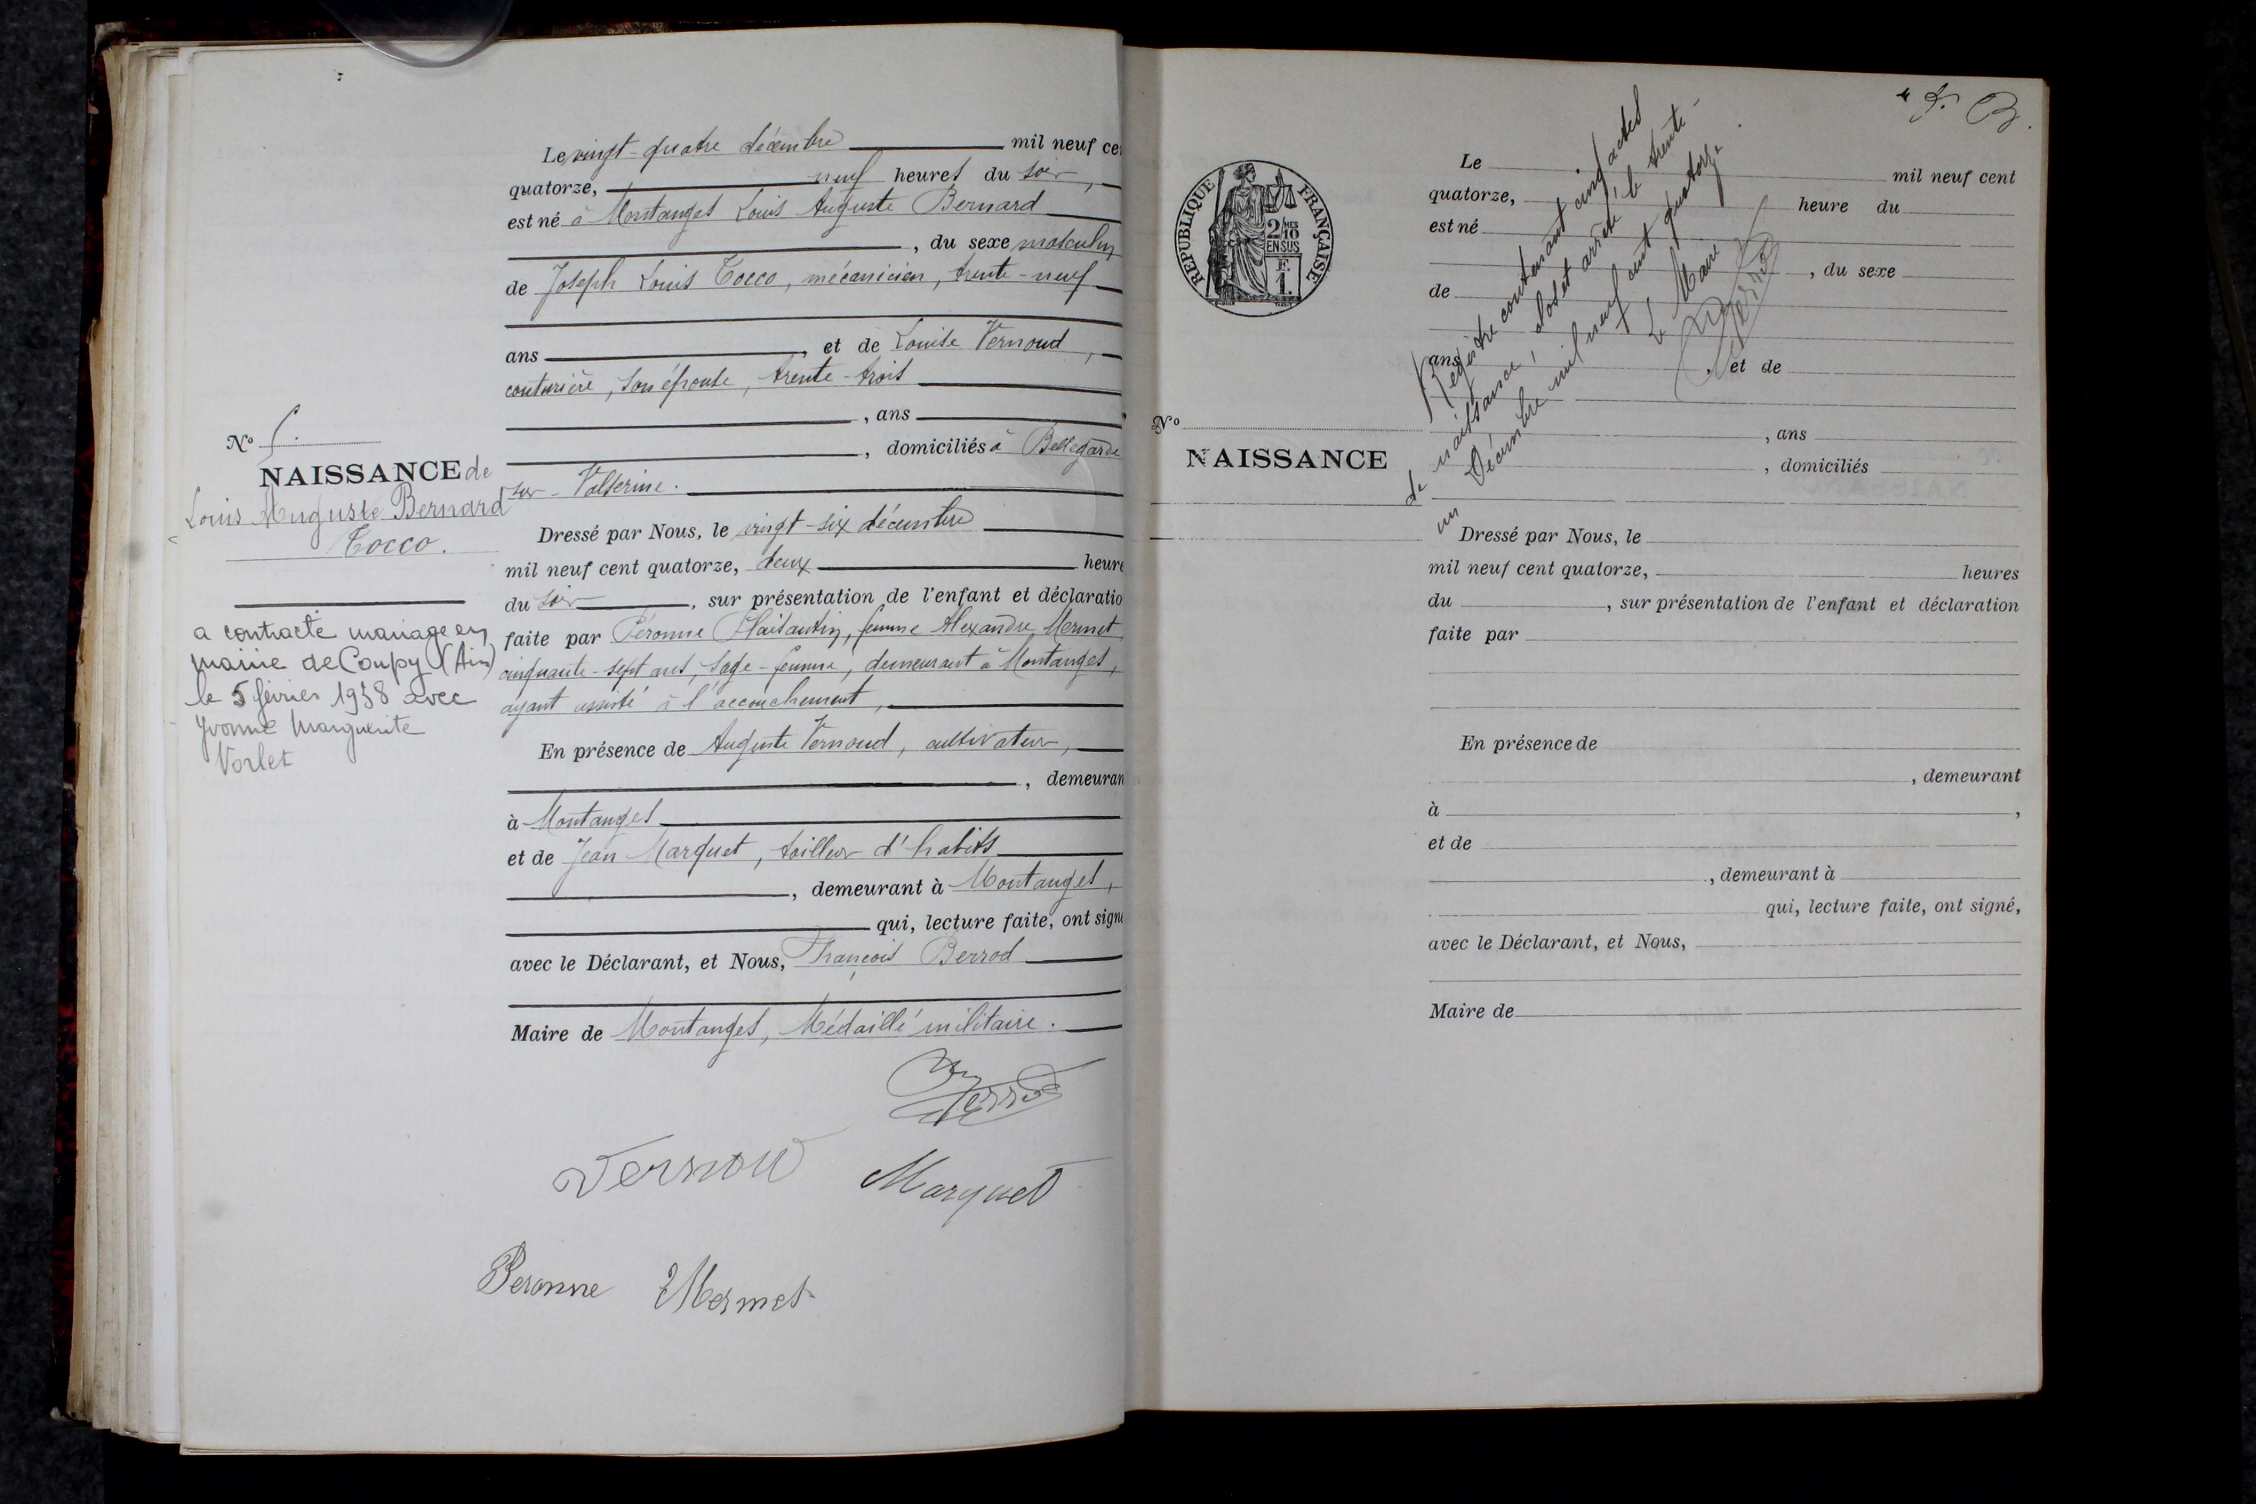 Le vingt-quatre décembre mil neuf cen
quatorze, neuf heures du soir,
est né à Montanges Louis Auguste Bernard
, du sexe masculin
de Joseph Louis Tocco, mécanicien, trente-neuf
ans , et de Louise Vernoud,
couturière, son épouse, trente-trois
, ans
, domiciliés à Bellegarde
sur-Valserine.
No 5.
NAISSANCE de
Louis Auguste Bernard
Tocco.
a contracté mariage en
mairie de Coupy (Ain)
le 5 février 1938 avec
Yvonne Marguerite
Vorlet
Dressé par Nous, le vingt-six décembre
mil neuf cent quatorze, deux heure
du soir , sur présentation de l'enfant et déclaratio
faite par Péronne , femme Alexandre Mermet
cinquante-sept ans, sage-femme, demeurant à Montanges,
ayant assisté à l'accouchement,
En présence de Auguste Vernoud, cultivateur,
, demeuran
à Montanges
et de Jean Marquet, tailleur d'habits
, demeurant à Montanges,
qui, lecture faite, ont signé
avec le Déclarant, et Nous, François Berrod
Maire de Montanges, Médaillé militaire.
Berrod
Vernou
Marquet
Peronne Mermet
B.
REPUBLIQUE FRANÇAISE
2/10 MES
EN SUS
F.
1.
Registre contenant cinq actes
de naissance, clos et arrêté le trente-
un Décembre mil neuf cent quatorze.
Le Maire
Berrod
Le mil neuf cent
quatorze, heure du
est né
, du sexe
de
ans , et de
, ans
, domiciliés
No
NAISSANCE
Dressé par Nous, le
mil neuf cent quatorze, heures
du , sur présentation de l'enfant et déclaration
faite par
En présence de
, demeurant
à ,
et de
, demeurant à
qui, lecture faite, ont signé,
avec le Déclarant, et Nous,
Maire de